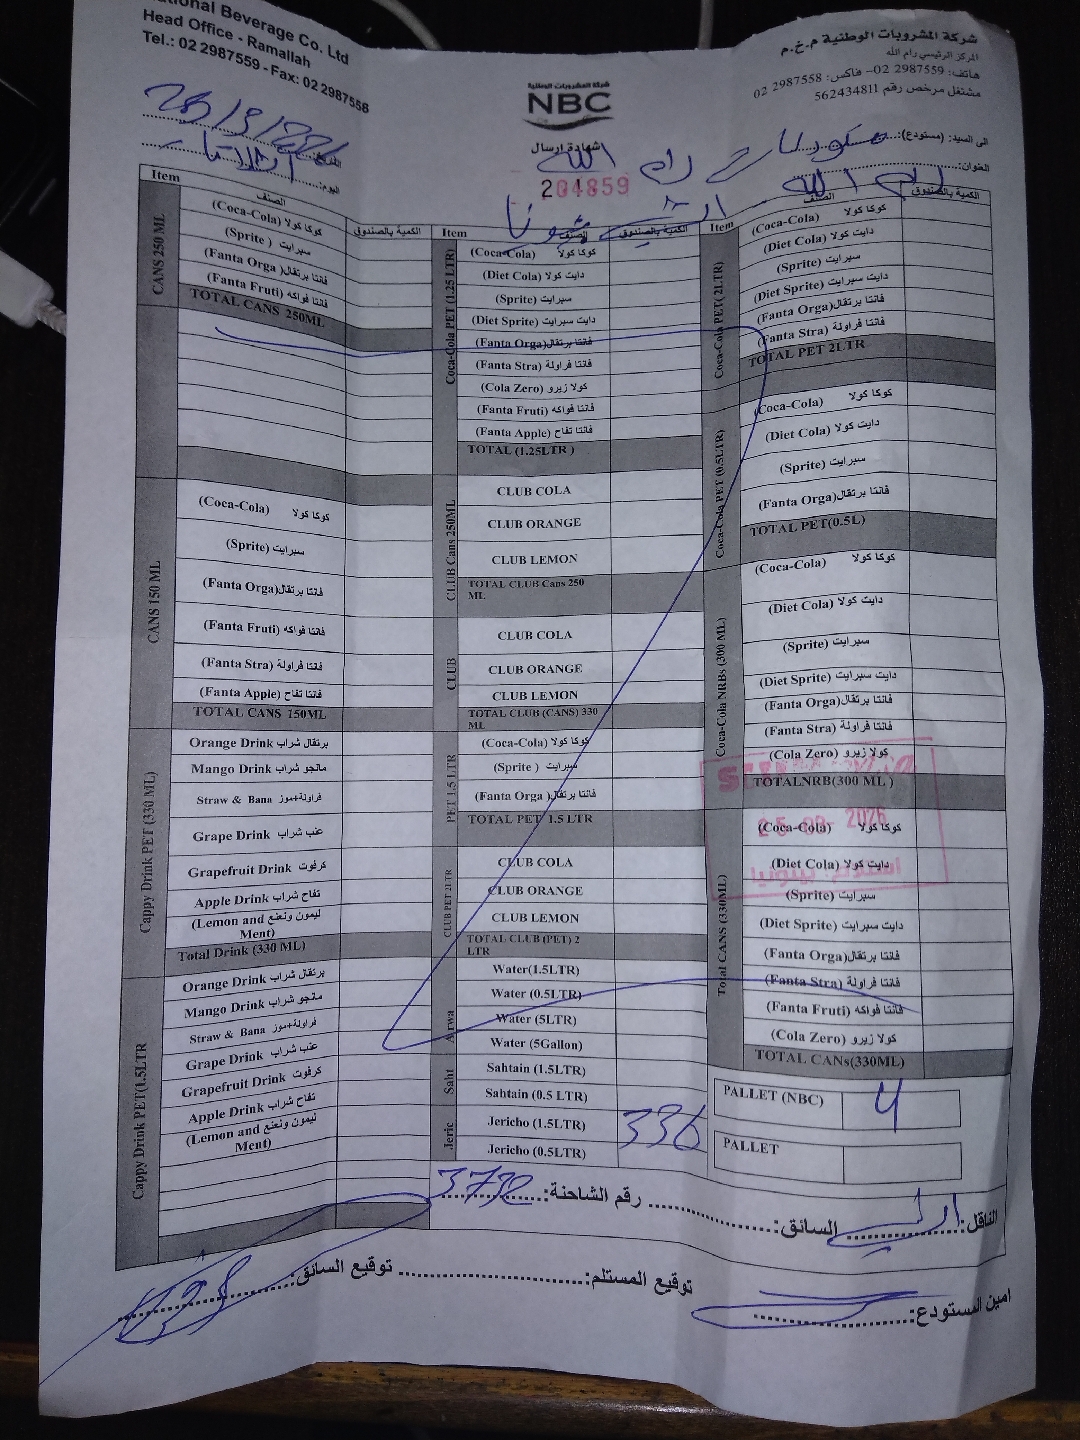 National Beverage Co. Ltd
Head Office - Ramallah
Tel.: 02 2987559 - Fax: 02 2987558
شركة المشروبات الوطنية م.خ.م
المركز الرئيسي رام الله
هاتف: 2987559 02- فاكس: 2987558 02
مشتغل مرخص رقم 562434811
شركة المشروبات الوطنية
NBC
شهادة ارسال
204859
التاريخ:
اليوم: الثلاثاء
الى السيد: (مستودع):
رام الله
العنوان: رام الله
Item الصنف الكمية بالصندوق
CANS 250 ML
كوكا كولا (Coca-Cola)
سبرايت (Sprite )
فانتا برتقال( Fanta Orga)
فانتا فواكه (Fanta Fruti)
TOTAL CANS 250ML
CANS 150 ML
كوكا كولا (Coca-Cola)
سبرايت (Sprite)
فانتا برتقال(Fanta Orga)
فانتا فواكه (Fanta Fruti)
فانتا فراولة (Fanta Stra)
فانتا تفاح (Fanta Apple)
TOTAL CANS 150ML
Cappy Drink PET (330 ML)
برتقال شراب Orange Drink
مانجو شراب Mango Drink
فراولة+موز Straw & Bana
عنب شراب Grape Drink
كرفوت Grapefruit Drink
تفاح شراب Apple Drink
ليمون ونعنع (Lemon and
Ment)
Total Drink (330 ML)
Cappy Drink PET(1.5LTR
برتقال شراب Orange Drink
مانجو شراب Mango Drink
فراولة+موز Straw & Bana
عنب شراب Grape Drink
كرفوت Grapefruit Drink
تفاح شراب Apple Drink
ليمون ونعنع (Lemon and
Ment)
Item الصنف الكمية بالصندوق
Coca-Cola PET (1.25 LTR)
كوكا كولا (Coca-Cola)
دايت كولا (Diet Cola)
سبرايت (Sprite)
دايت سبرايت (Diet Sprite)
فانتا برتقال(Fanta Orga)
فانتا فراولة (Fanta Stra)
كولا زيرو (Cola Zero)
فانتا فواكه (Fanta Fruti)
فانتا تفاح (Fanta Apple)
TOTAL (1.25LTR )
CLUB Cans 250ML
CLUB COLA
CLUB ORANGE
CLUB LEMON
TOTAL CLUB Cans 250
ML
CLUB
CLUB COLA
CLUB ORANGE
CLUB LEMON
TOTAL CLUB (CANS) 330
ML
PET 1.5 LTR
كوكا كولا (Coca-Cola)
سبرايت (Sprite )
فانتا برتقال( Fanta Orga)
TOTAL PET 1.5 LTR
CLUB PET 2LTR
CLUB COLA
CLUB ORANGE
CLUB LEMON
TOTAL CLUB (PET) 2
LTR
Arwa
Water(1.5LTR)
Water (0.5LTR)
Water (5LTR)
Water (5Gallon)
Saht
Sahtain (1.5LTR)
Sahtain (0.5 LTR)
Jeric
Jericho (1.5LTR) 336
Jericho (0.5LTR)
Item الصنف الكمية بالصندوق
Coca-Cola PET( 2LTR)
كوكا كولا (Coca-Cola)
دايت كولا (Diet Cola)
سبرايت (Sprite)
دايت سبرايت (Diet Sprite)
فانتا برتقال(Fanta Orga)
فانتا فراولة (Fanta Stra)
TOTAL PET 2LTR
Coca-Cola PET (0.5LTR)
كوكا كولا (Coca-Cola)
دايت كولا (Diet Cola)
سبرايت (Sprite)
فانتا برتقال(Fanta Orga)
TOTAL PET(0.5L)
Coca-Cola NRBs (300 ML)
كوكا كولا (Coca-Cola)
دايت كولا (Diet Cola)
سبرايت (Sprite)
دايت سبرايت (Diet Sprite)
فانتا برتقال(Fanta Orga)
فانتا فراولة (Fanta Stra)
كولا زيرو (Cola Zero)
TOTALNRB(300 ML )
Total CANS (330ML)
كوكا كولا (Coca-Cola)
دايت كولا (Diet Cola)
سبرايت (Sprite)
دايت سبرايت (Diet Sprite)
فانتا برتقال(Fanta Orga)
فانتا فراولة (Fanta Stra)
فانتا فواكه (Fanta Fruti)
كولا زيرو (Cola Zero)
TOTAL CANs(330ML)
PALLET (NBC) 4
PALLET
الناقل: السائق: رقم الشاحنة: 3732
امين المستودع: توقيع المستلم: توقيع السائق: